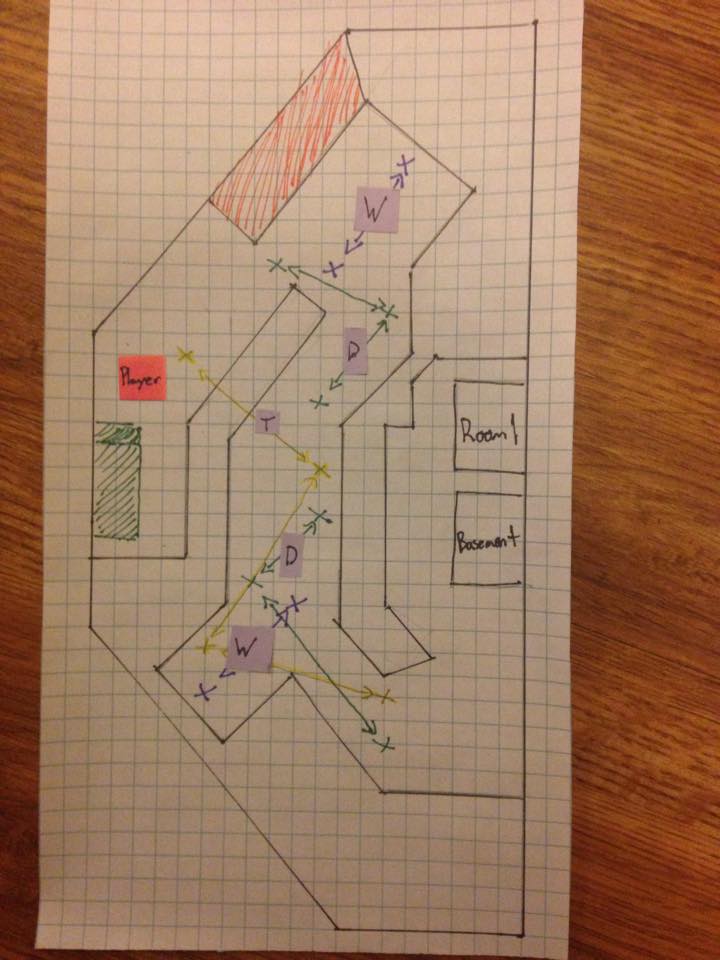 W
D
Player
T
Room 1
D
Basement
W